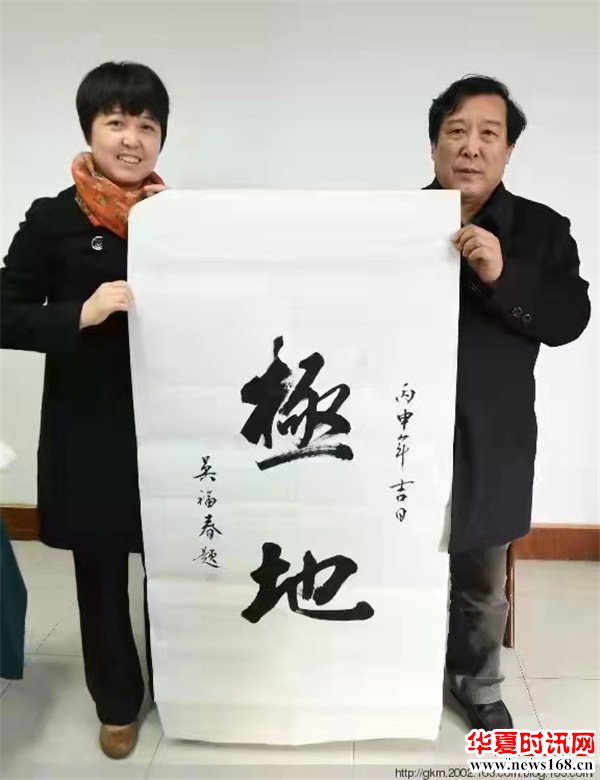 丙申年吉日
極地
吴福春題
华夏时讯网
www.news168.cn
http://gkm.2002.163.com.blog.163.com